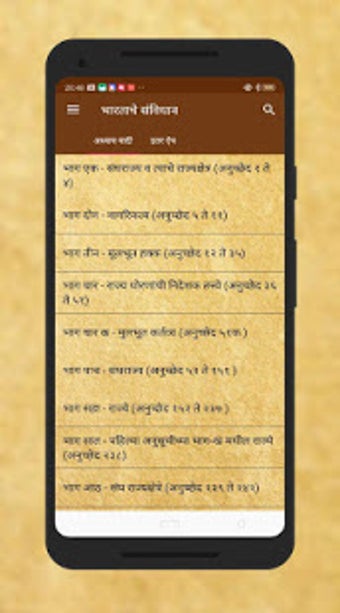 भारताचे संविधान
अध्याय यादी इतर ऍप
भाग एक - संघराज्य व त्याचे राज्यक्षेत्र (अनुच्छेद १ ते
४)
भाग दोन - नागरिकत्व (अनुच्छेद ५ ते ११)
भाग तीन - मूलभूत हक्क (अनुच्छेद १२ ते ३५)
भाग चार - राज्य धोरणाची निदेशक तत्त्वे (अनुच्छेद ३६
ते ५१)
भाग चार क - मूलभूत कर्तव्य (अनुच्छेद ५१क )
भाग पाच - संघराज्य (अनुच्छेद ५२ ते १५१ )
भाग सहा - राज्ये (अनुच्छेद १५२ ते २३७ )
भाग सात - पहिल्या अनुसूचीच्या भाग-ख मधील राज्ये
(अनुच्छेद २३८)
भाग आठ - संघ राज्यक्षेत्रे (अनुच्छेद २३९ ते २४२)